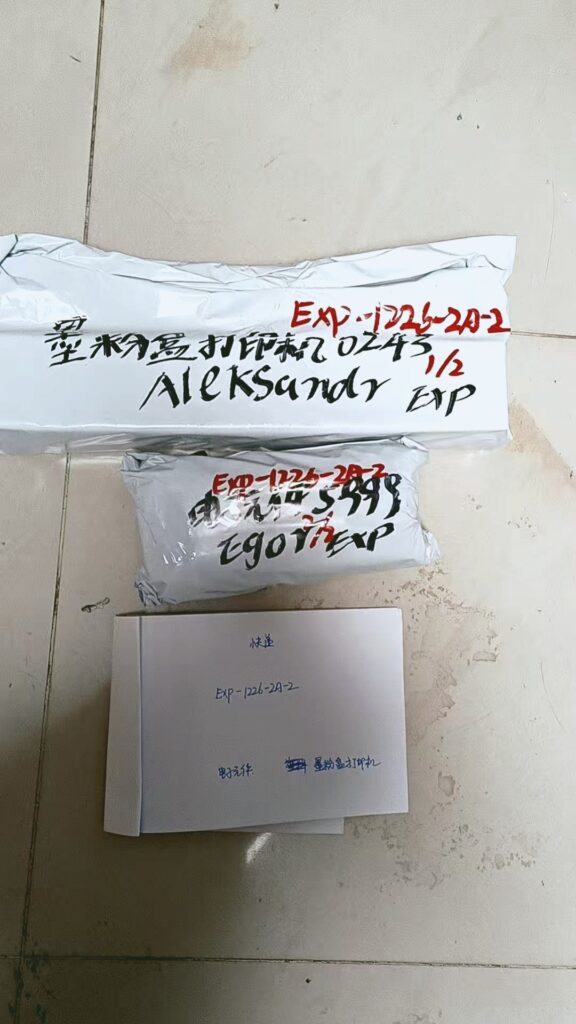 Exp-1226-2A-2
墨粉盒打印机0243
1/2
Aleksandr EXP
Exp-1226-2A-2
电子元件5999
Egor EXP
快递
Exp-1226-2A-2
电子元件 墨粉盒打印机